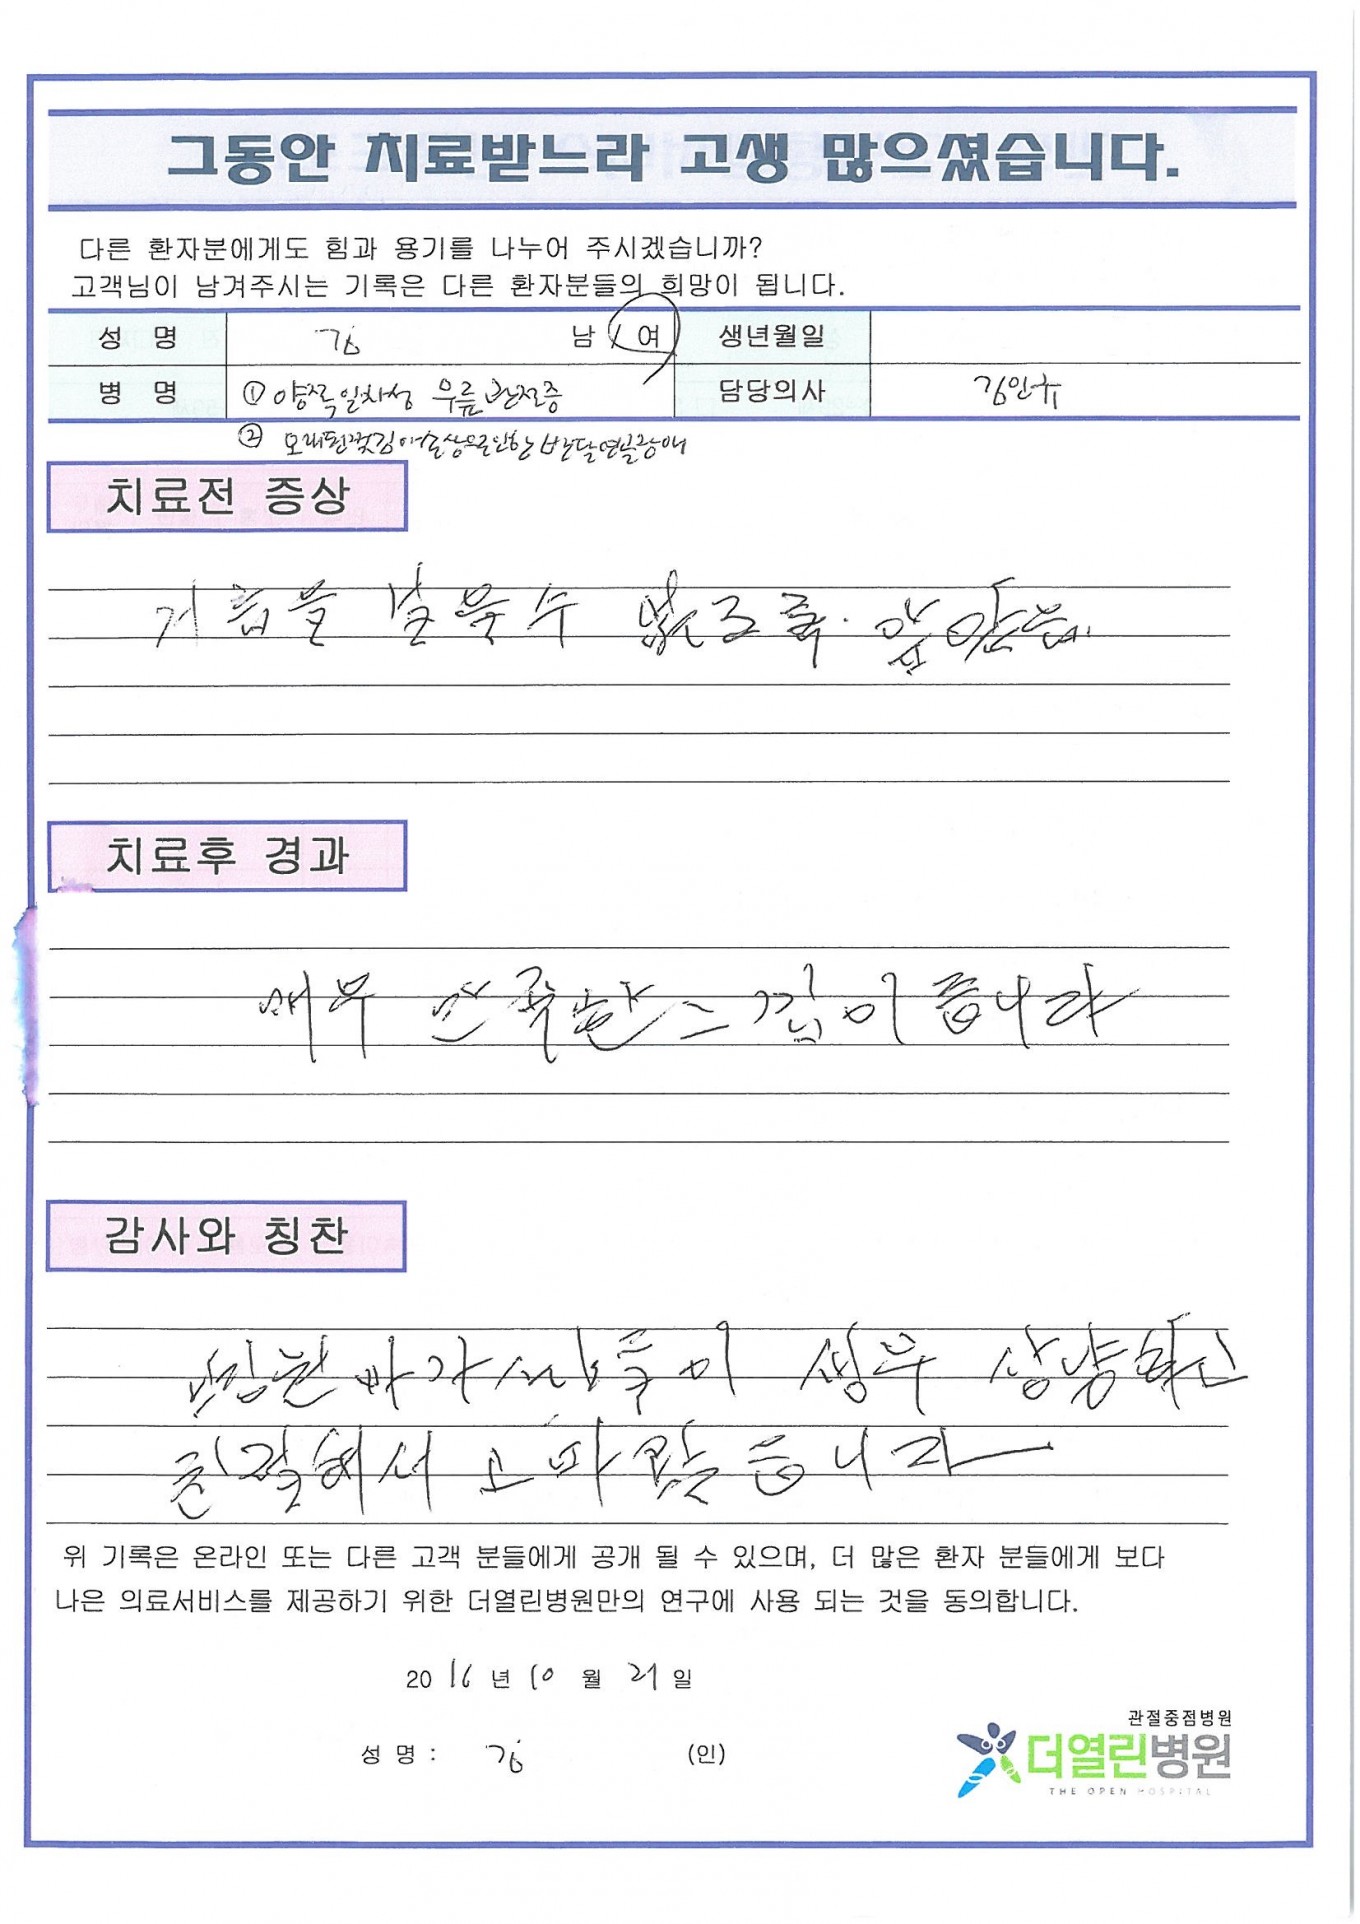 그동안 치료받느라 고생 많으셨습니다.
다른 환자분에게도 힘과 용기를 나누어 주시겠습니까?
고객님이 남겨주시는 기록은 다른 환자분들의 희망이 됩니다.
성 명 김 남 / 여 생년월일
병 명 ① 양쪽일차성 무릎관절증 담당의사 김인규
② 오래된찢김이나손상으로인한 반달연골장애
치료전 증상
거름을 걸을수 없도록
치료후 경과
매우 만족한 느낌이 듭니다
감사와 칭찬
이 상냥하고
친절해서 고마웠습니다
위 기록은 온라인 또는 다른 고객 분들에게 공개 될 수 있으며, 더 많은 환자 분들에게 보다
나은 의료서비스를 제공하기 위한 더열린병원만의 연구에 사용 되는 것을 동의합니다.
2016 년 10 월 21 일
성 명 : 김 (인)
관절중점병원
더열린병원
THE OPEN HOSPITAL